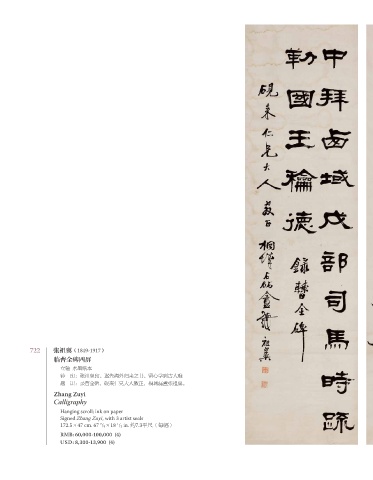 中拜西域戊部司馬時疏
勒國王龢德
錄曹全碑
仁兄大人
722
张祖翼（1849-1917）
临曹全碑四屏
立轴 水墨纸本
Zhang Zuyi
Calligraphy
Hanging scroll; ink on paper
Signed Zhang Zuyi, with 8 artist seals
172.5 × 47 cm. 67 7/8 × 18 1/2 in. 约7.3平尺（每幅）
RMB: 60,000-100,000 (4)
USD: 8,300-13,900 (4)